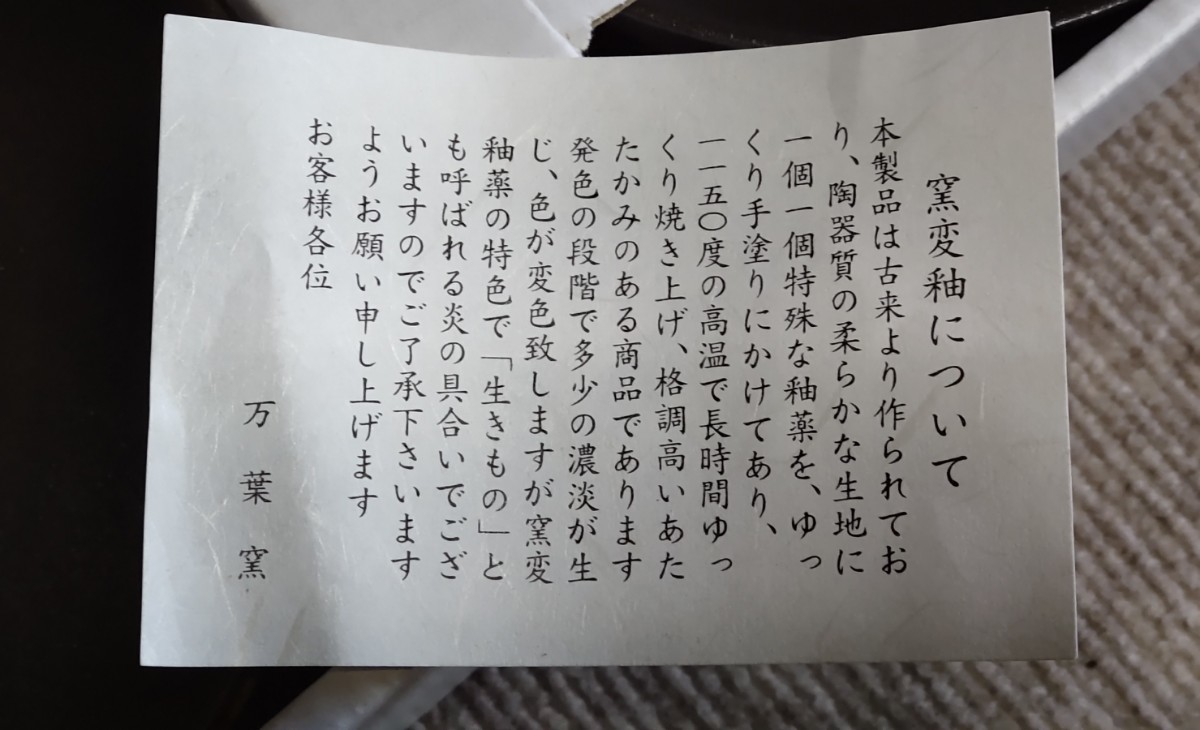 窯変釉について
本製品は古来より作られてお
り、陶器質の柔らかな生地に
一個一個特殊な釉薬を、ゆっ
くり手塗りにかけてあり、
一一五〇度の高温で長時間ゆっ
くり焼き上げ、格調高いあた
たかみのある商品であります
発色の段階で多少の濃淡が生
じ、色が変色致しますが窯変
釉薬の特色で「生きもの」と
も呼ばれる炎の具合いでござ
いますのでご了承下さいます
ようお願い申し上げます
お客様各位
万葉窯